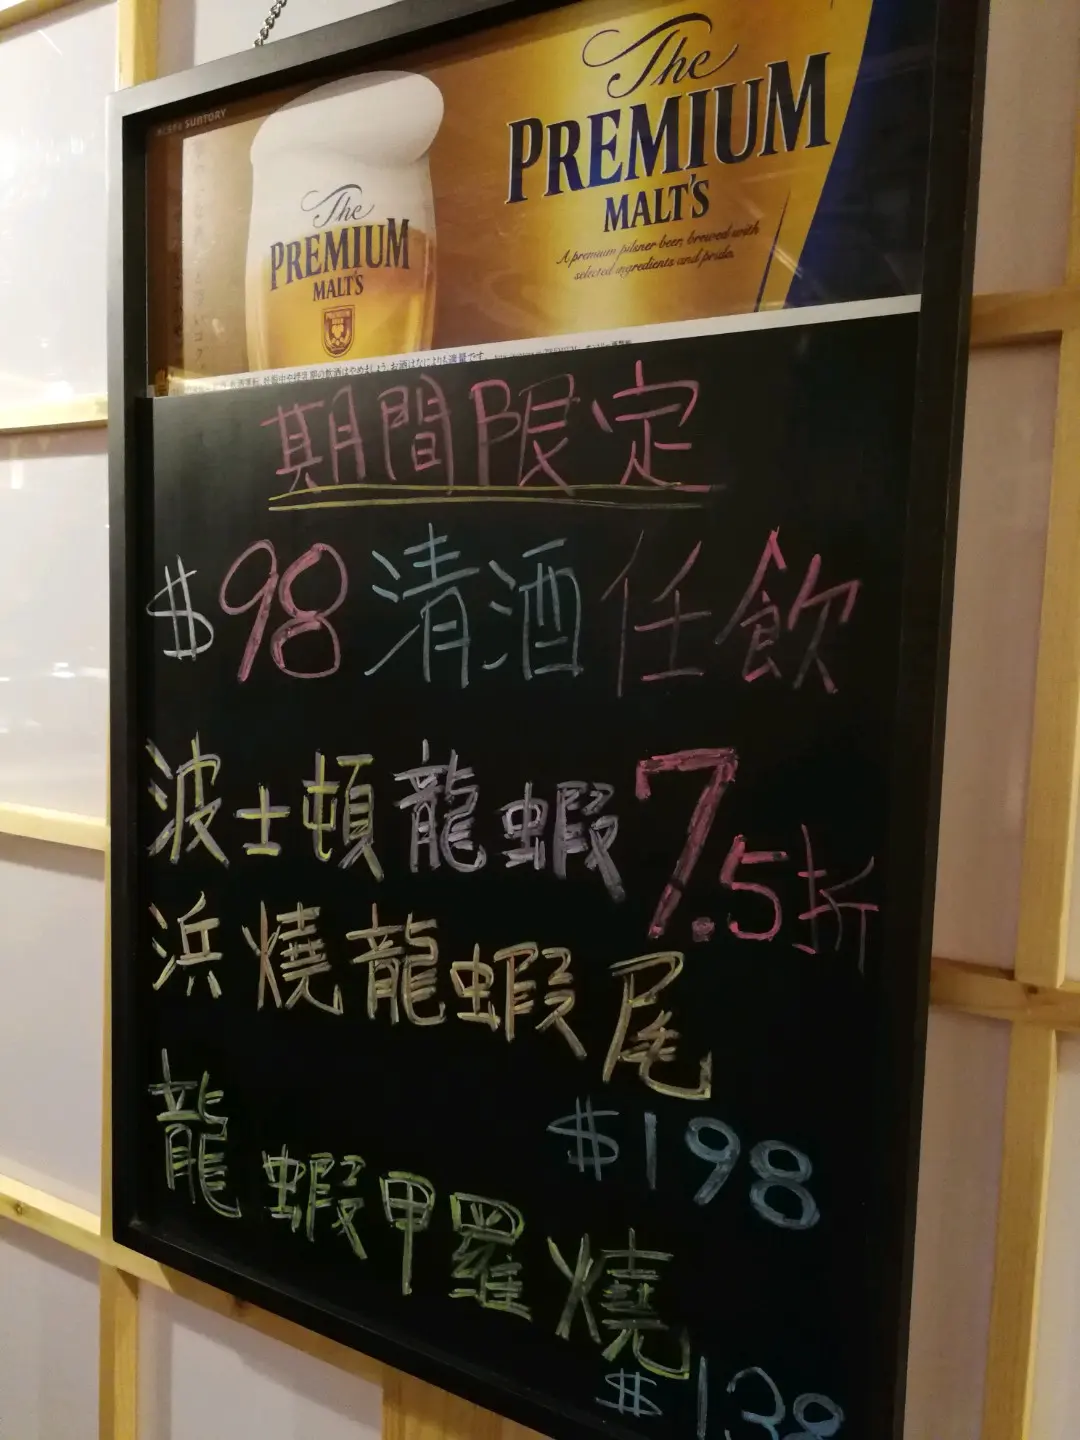 SUNTORY
The
PREMIUM
MALT'S
A premium pilsner beer, brewed with
selected ingredients and pride.
The
PREMIUM
MALT'S
期間限定
$98清酒任飲
波士頓龍蝦7.5折
浜燒龍蝦尾
$198
龍蝦甲羅燒
$138